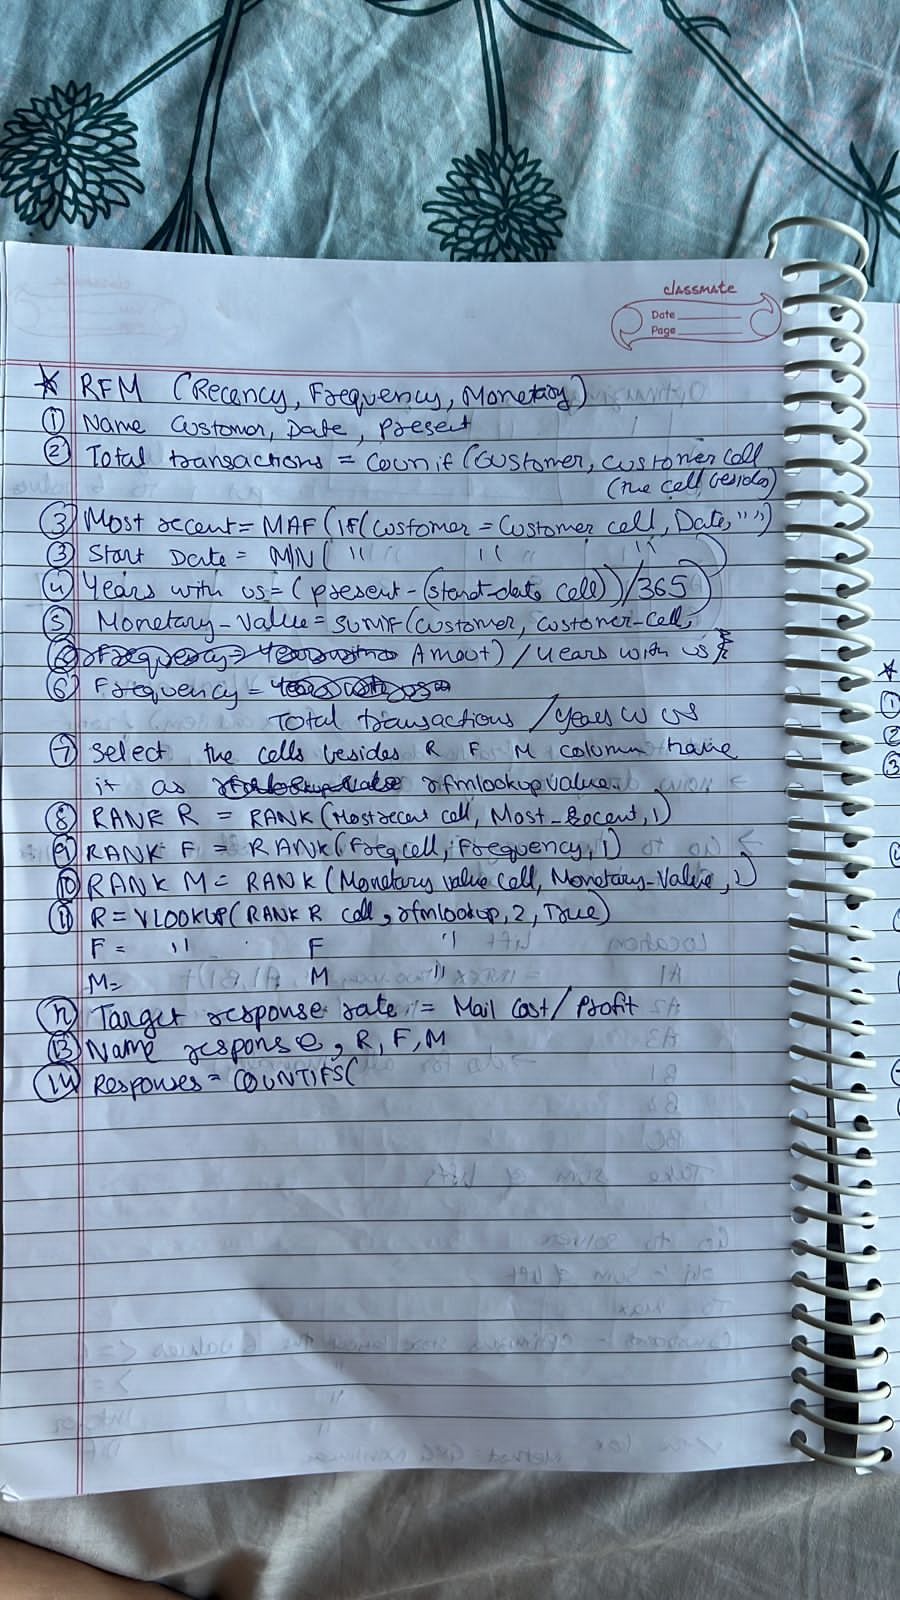 classmate
Date
Page
* RFM (Recency, Frequency, Monetary)
① Name Customer, Date, Present
② Total transactions = Counif (Customer, customer cell
(the cell besides)
③ Most recent = MAF (if (customer = Customer cell, Date, " ")
③ Start Date = MIN ( " " " "
④ Years with us = (present - (start-date cell)) / 365
⑤ Monetary-Value = SUMIF (customer, customer-cell,
Amout) / years with us
⑥ Frequency =
Total transactions / years w us
⑦ Select the cells besides R F M column name
it as rfmlookupvalue.
⑧ RANK R = RANK (Most recent cell, Most-Recent, 1)
⑨ RANK F = RANK (Freq cell, Frequency, 1)
⑩ RANK M = RANK (Monetary value cell, Monetary-Value, 1)
⑪ R = VLOOKUP (RANK R cell, rfmlookup, 2, True)
F = " F "
M = M "
Target response rate = Mail Cost / Profit
⑬ Name response, R, F, M
⑭ Responses = COUNTIFS(